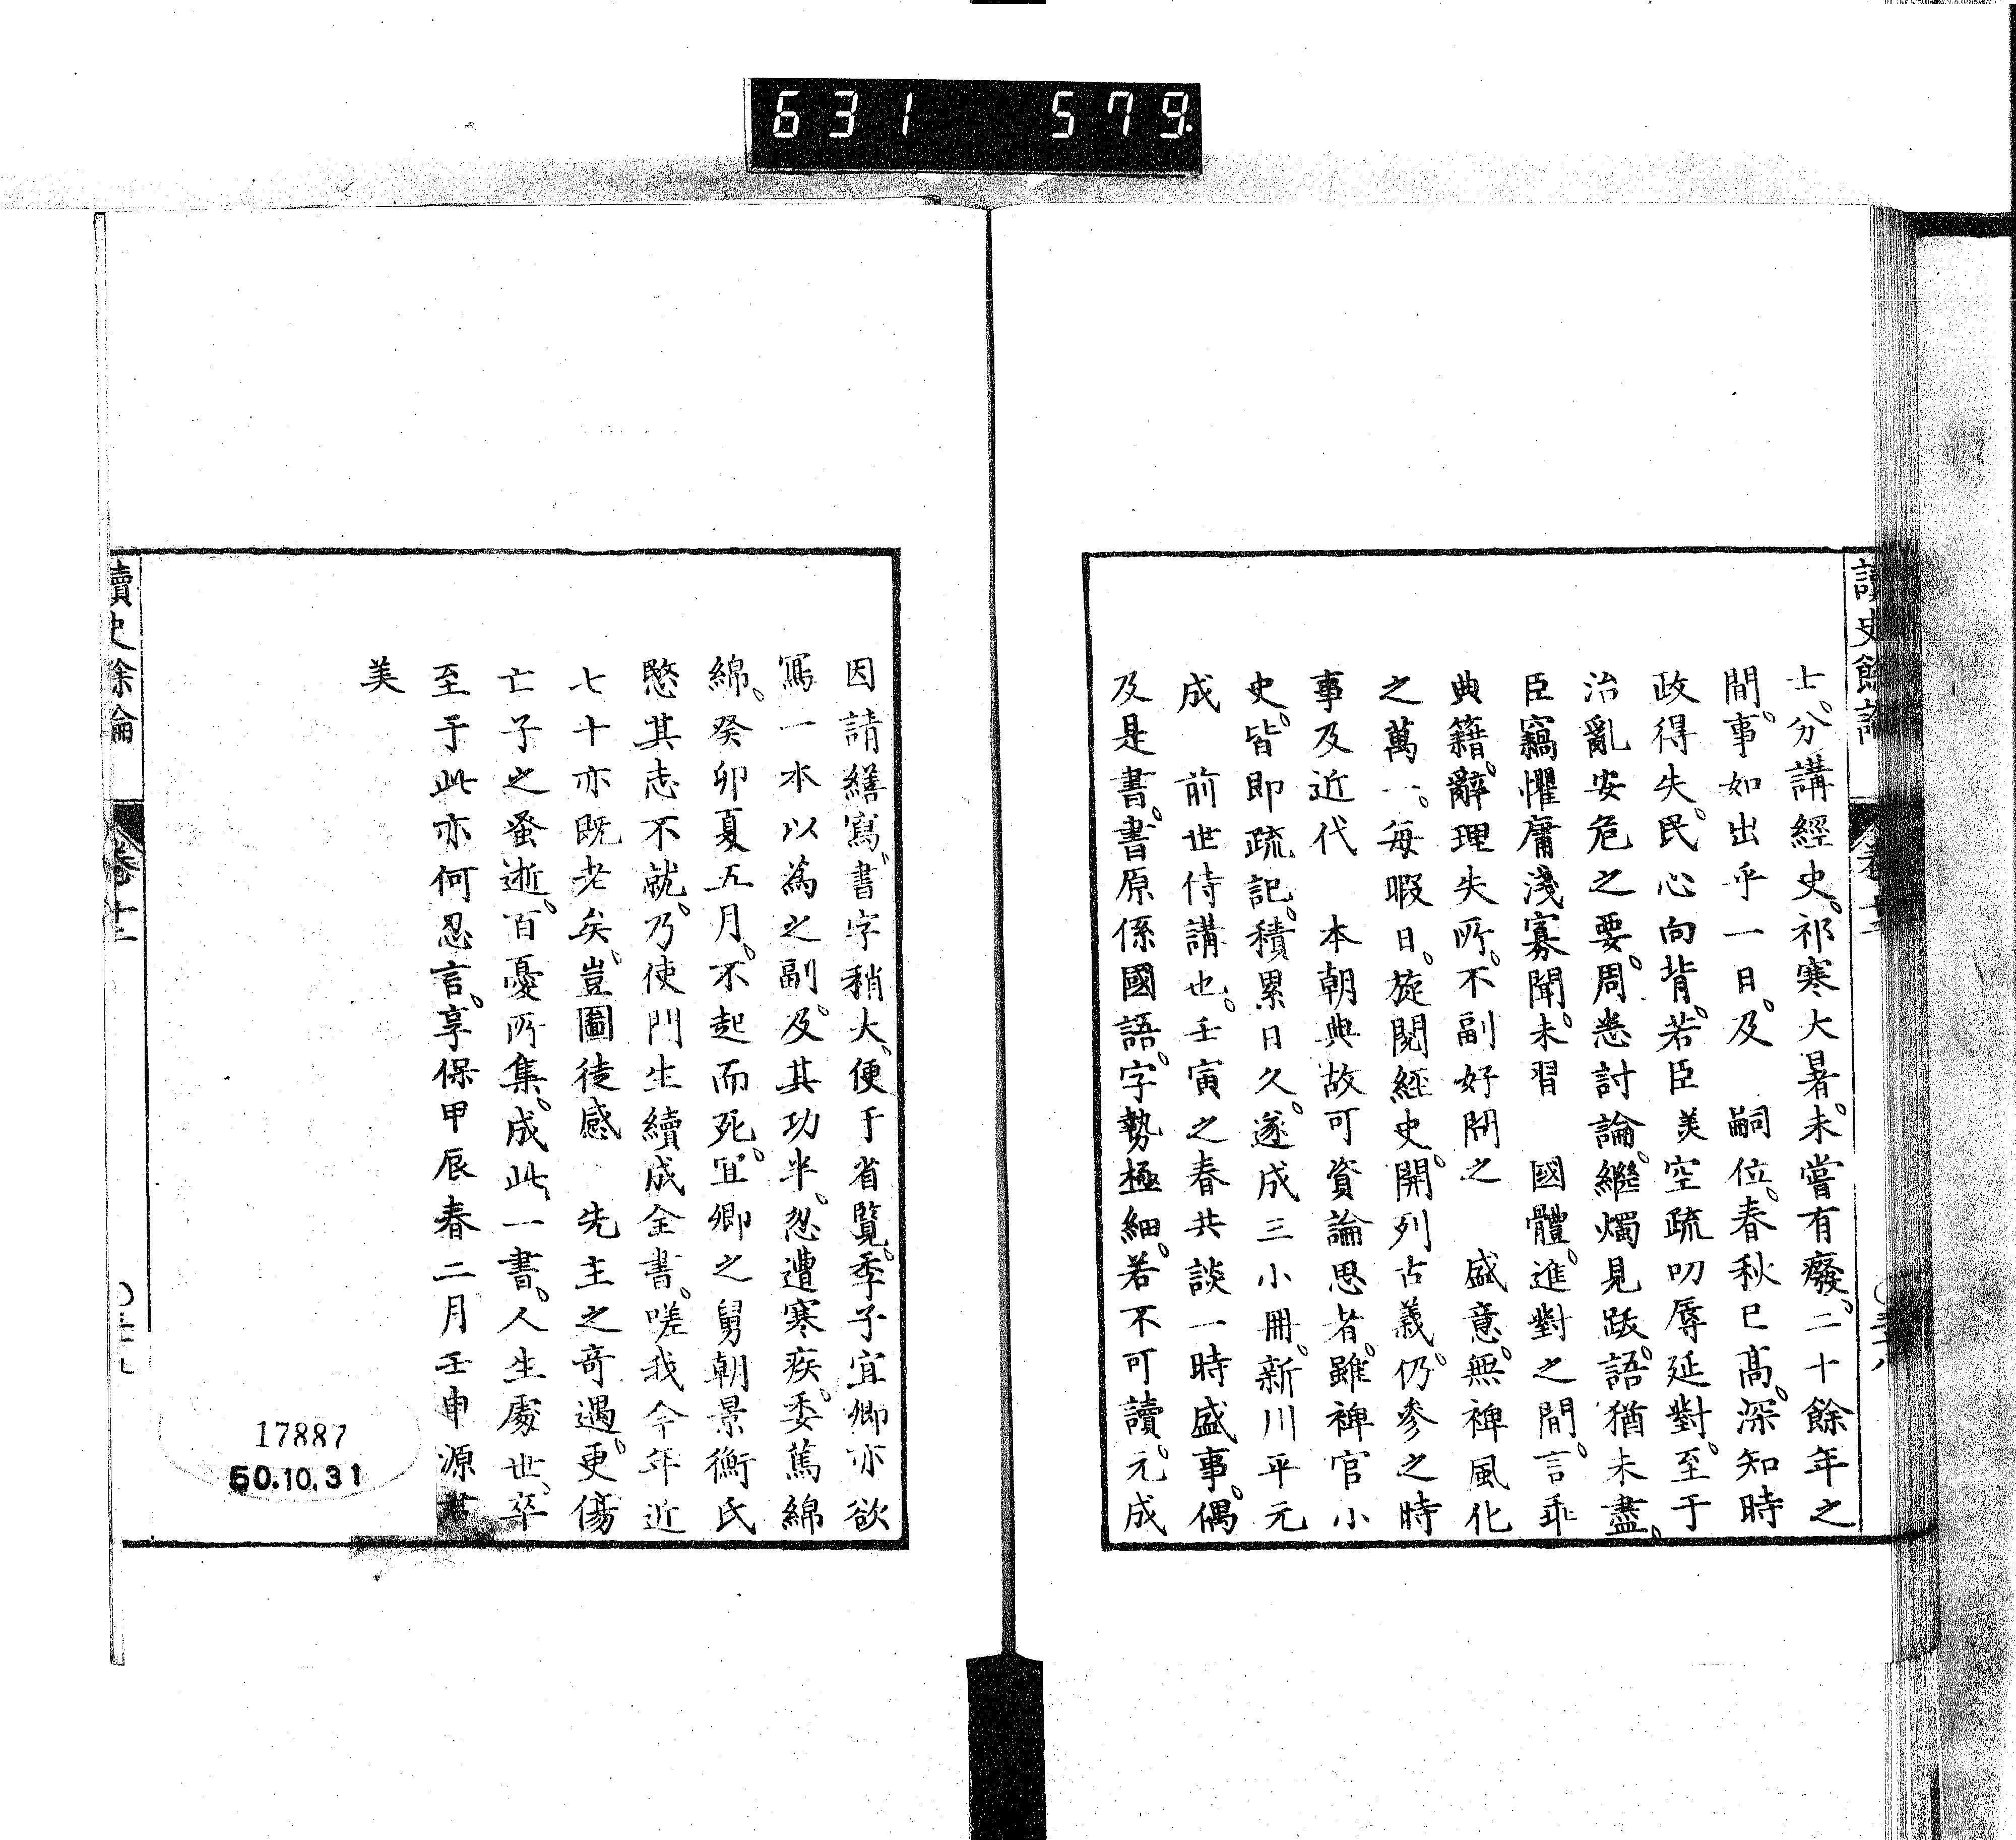 631 579.
士。分講經史。祁寒大暑。未嘗有癈。二十餘年之
間。事如出乎一日。及　嗣位。春秋已髙。深知時
政得失。民心向背。若臣美空疏叨辱延對。至于
治亂安危之要。周悉討論。繼燭見跋。語猶未盡。
臣竊懼庸淺寡聞。未習　國體。進對之間。言乖
典籍。辭理失所。不副好問之　盛意。無裨風化
之萬一。每暇日。旋閱經史。開列古義。仍參之時
事及近代　本朝典故可資論思者。雖稗官小
史。皆即疏記。積累日久。遂成三小冊。新川平元
成　前世侍講也。壬寅之春共談一時盛事。偶
及是書。書原係國語。字勢極細。若不可讀。元成
因請繕寫。書字稍大。便于省覽。季子宜卿亦欲
寫一本以為之副。及其功半。忽遭寒疾。委篤綿
綿。癸卯夏五月。不起而死。宜卿之舅朝景衡氏
愍其志不就。乃使門生續成全書。嗟我今年近
七十亦既老矣。豈圖徒感　先主之奇遇。更傷
亡子之蚤逝。百憂所集。成此一書。人生處世、卒
至于此亦何忍言。享保甲辰春二月壬申源君
美
讀史餘論
卷十二
17887
50.10.31